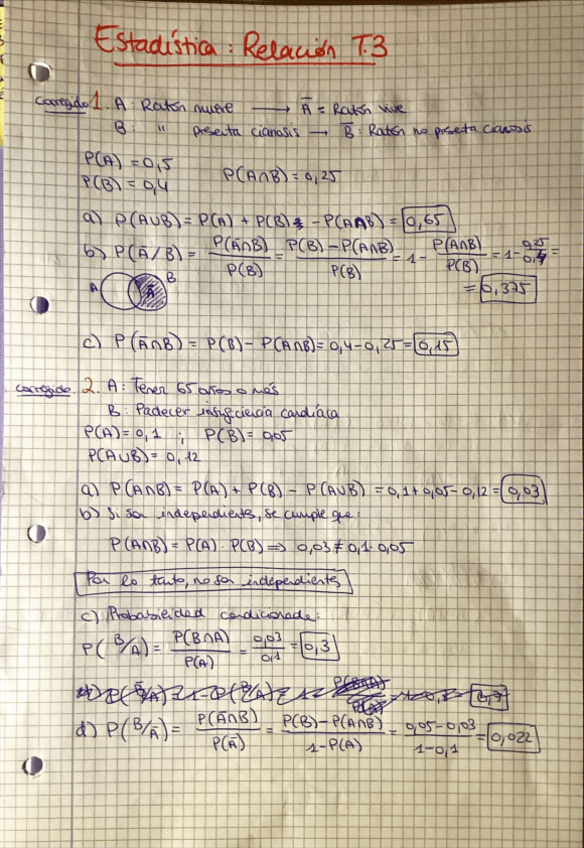 Estadística: Relación T.3
corregido 1. A: Ratón muere → Ā = Ratón vive
B: " preseta cianosis → B̄: Ratón no preseta cianosis
P(A) = 0,5
P(B) = 0,4 P(A∩B) = 0,25
a) P(A∪B) = P(A) + P(B) - P(A∩B) = 0,65
b) P(Ā/B) = P(Ā∩B)/P(B) = P(B) - P(A∩B)/P(B) = 1 - P(A∩B)/P(B) = 1 - 0,25/0,4 =
= 0,375
A B Ā
c) P(Ā∩B) = P(B) - P(A∩B) = 0,4 - 0,25 = 0,15
corregido 2. A: Tener 65 años o más
B: Padecer insuficiencia cardíaca
P(A) = 0,1 ; P(B) = 0,05
P(A∪B) = 0,12
a) P(A∩B) = P(A) + P(B) - P(A∪B) = 0,1 + 0,05 - 0,12 = 0,03
b) Si son independientes, se cumple que:
P(A∩B) = P(A) · P(B) ⇒ 0,03 ≠ 0,1 · 0,05
Por lo tanto, no son independientes
c) Probabilidad condicionada:
P(B/A) = P(B∩A)/P(A) = 0,03/0,1 = 0,3
d) P(B/Ā) = P(Ā∩B)/P(Ā) = P(B) - P(A∩B)/1 - P(A) = 0,05 - 0,03/1 - 0,1 = 0,022